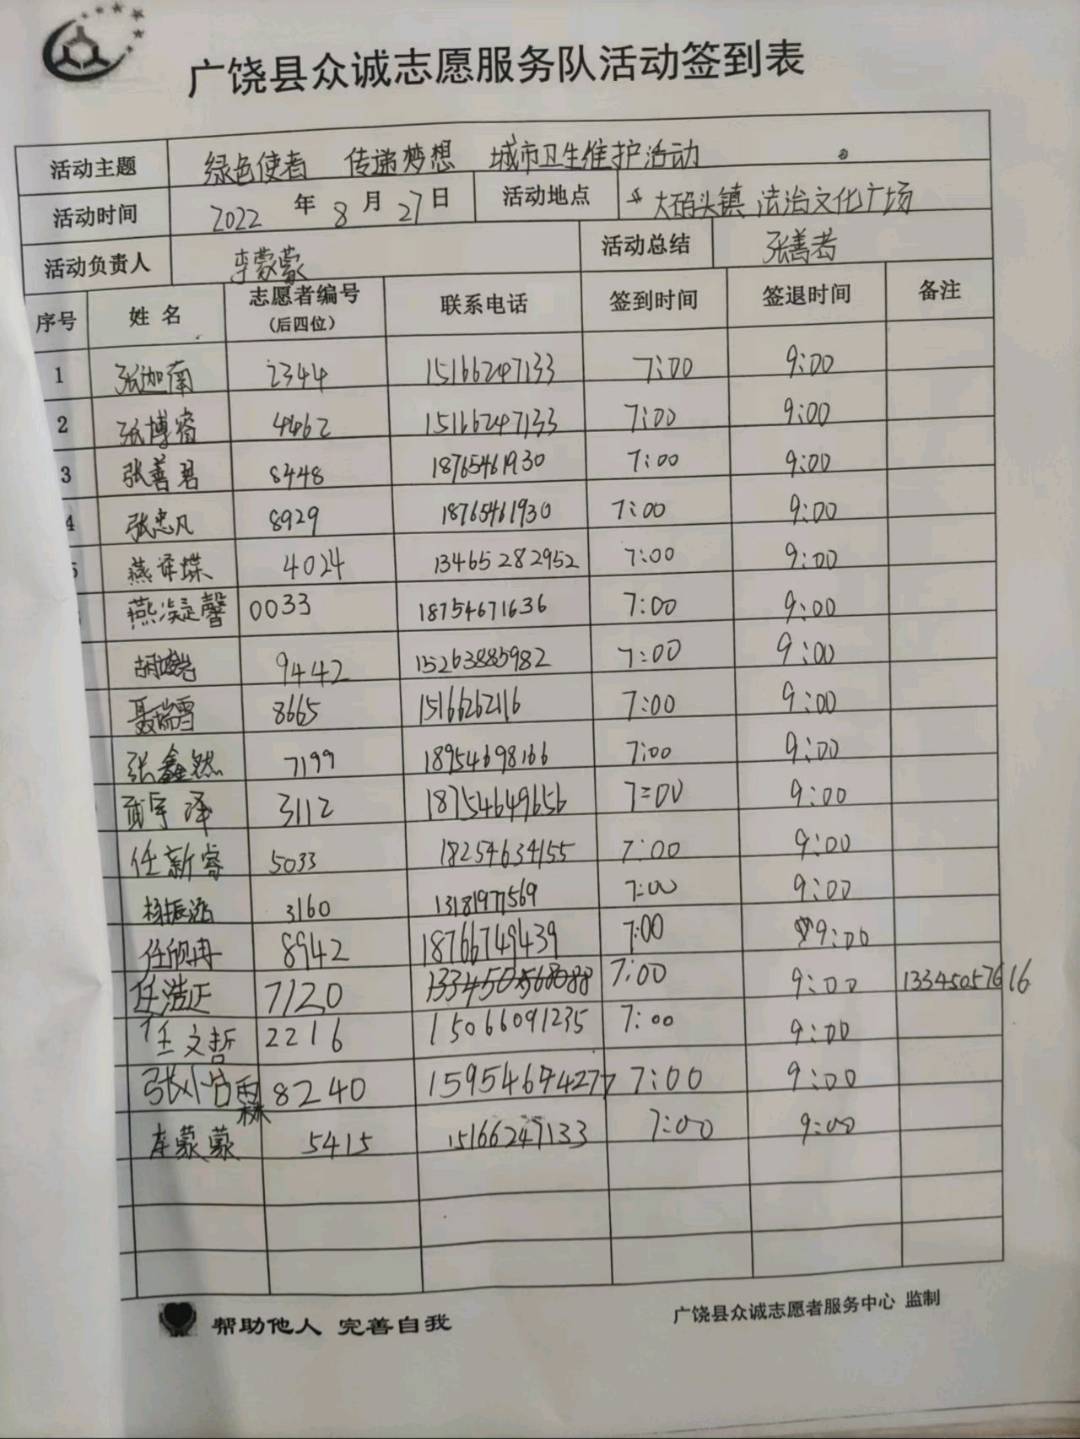 广饶县众诚志愿服务队活动签到表
活动主题 绿色使者 传递梦想 城市卫生维护活动
活动时间 2022 年 8 月 27 日 活动地点 大码头镇 法治文化广场
活动负责人 李蒙蒙 活动总结 张善君
序号 姓名 志愿者编号 (后四位) 联系电话 签到时间 签退时间 备注
1 张迦南 2344 15166247133 7:00 9:00
2 张博睿 4462 15166247133 7:00 9:00
3 张善君 8448 18765461930 7:00 9:00
4 张忠凡 8929 18765461930 7:00 9:00
5 燕译堞 4024 13465282952 7:00 9:00
燕凝馨 0033 18754671636 7:00 9:00
9442 15263885982 7:00 9:00
聂瑞雪 8665 15166262116 7:00 9:00
张鑫然 7199 18954698166 7:00 9:00
宇泽 3112 18754649656 7:00 9:00
任新睿 5033 18254634155 7:00 9:00
杨振 3160 13181977569 7:00 9:00
任欣冉 8942 18766749439 7:00 9:00
任浩正 7120 7:00 9:00 13345057616
任文哲 2216 15066091235 7:00 9:00
张 8240 15954674277 7:00 9:00
李蒙蒙 5415 15166247133 7:00 9:00
帮助他人 完善自我
广饶县众诚志愿者服务中心 监制